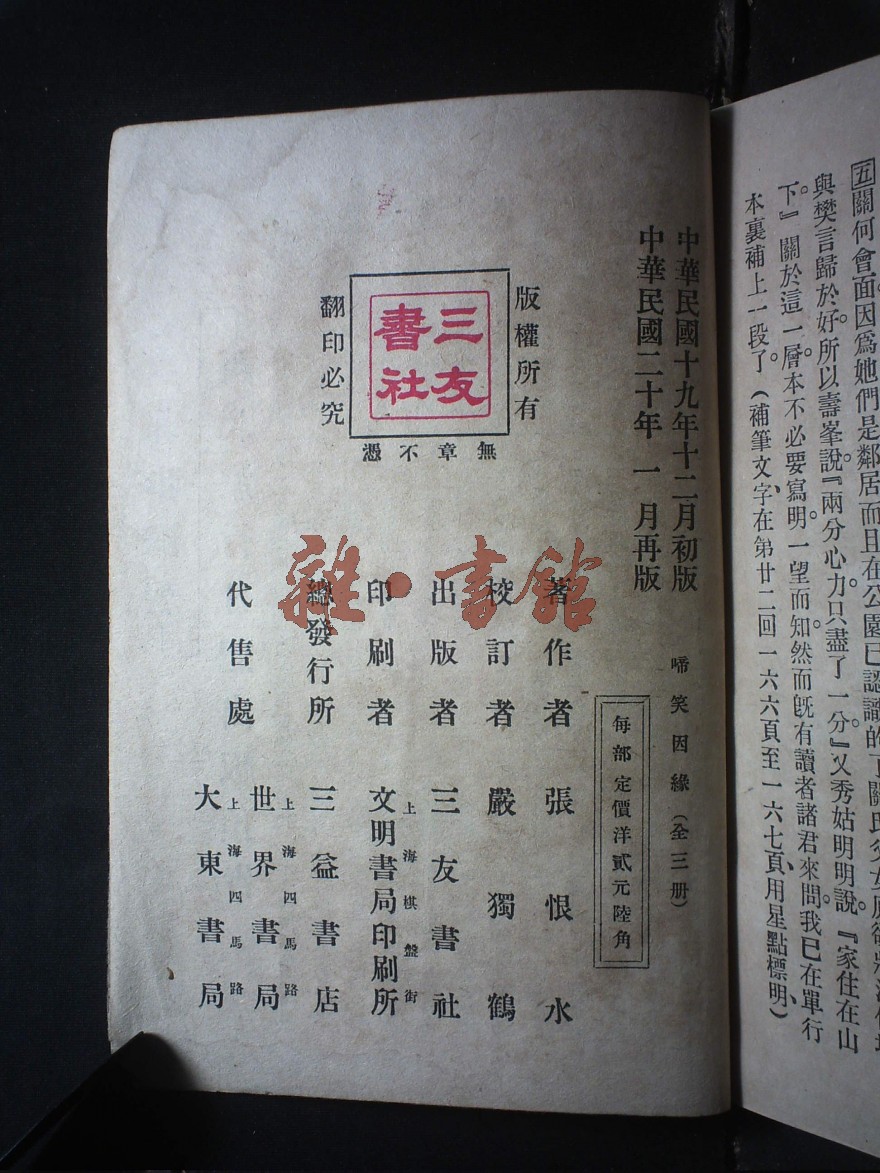 五關何會面因爲她們是鄰居而且在公園已認識的了關氏父女原欲將沈
與樊言歸於好。所以壽峯說『兩分心力只盡了一分』又秀姑明明說。『家住在山
下。』關於這一層。本不必要寫明一望而知。然而旣有讀者諸君來問。我已在單行
本裏補上一段了。(補筆文字、在第廿二回一六六頁至一六七頁、用星點標明、)
中華民國十九年十二月初版
中華民國二十年一月再版
啼笑因緣(全三册)
每部定價洋貳元陸角
版權所有
三友
書社
翻印必究
無章不憑
著作者 張恨水
校訂者 嚴獨鶴
出版者 三友書社
印刷者 上海棋盤街 文明書局印刷所
總發行所 三益書店
代售處 上海四馬路 世界書局
上海四馬路 大東書局
雜·書館